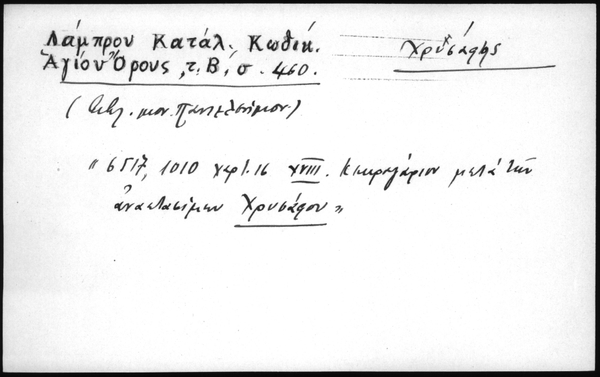 Λάμπρου Κατάλ. Κωδικ.
Χρυσάφης
Ἁγίου Ὄρους, τ. Β, σ. 460.
(Βιβλ. μον. Παντελεήμων)
" 6517, 1010 χαρτ. 16 XVIII. Κεκραγάριον μετὰ τῶν
ἀναστασίμων Χρυσάφου "